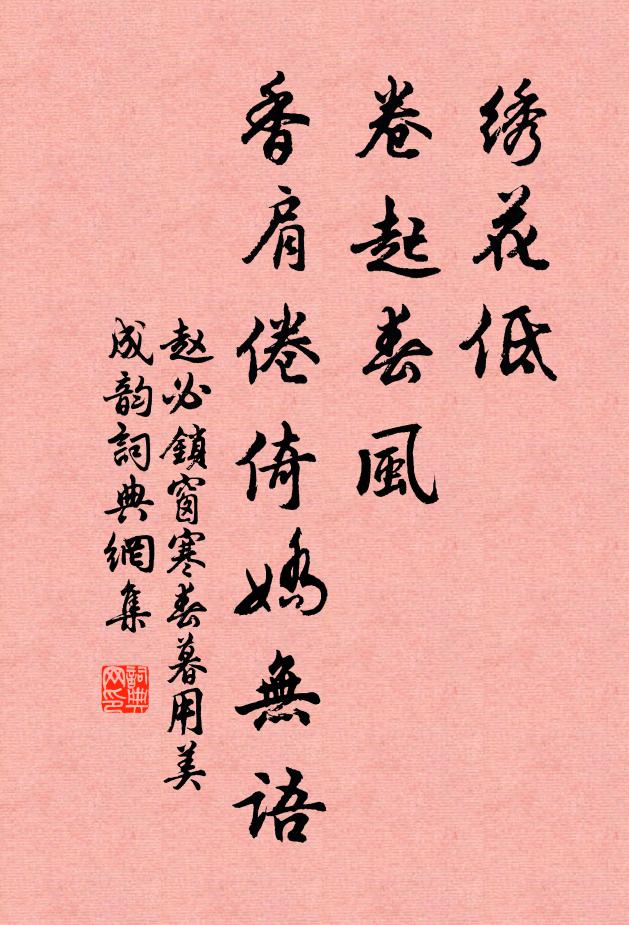 绣花低
卷起春風
香肩倦倚嬌無語
赵必鎖窗寒春暮用美
成韵詞典網集
詞典网印